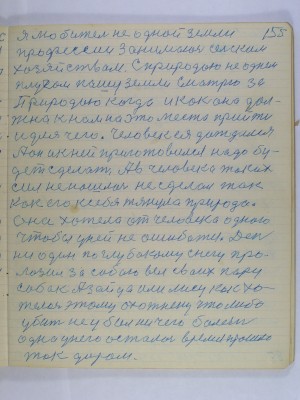 155
Я любител не одной земли
професии Занимался сельским
хозяйствам. С природаю не один
плугом пашу земли смотрю за
Природаю когда и как она дол-
жна к нам на это места прийти
и для чего. Человек ея дождался
А он к ней приготовился надо бу-
дет сделат. А в человека таких
сил не нашлос не сделал так
как его к себя тянула природа.
Она хотела от человека одного
чтобы у ней не ошибатся. Ден
ни один по глубокому снегу про-
лозил за собою вел своих пару
собак А зайца или лису как хо-
телос этому охотнику это либо
убит не убил ничего болель
одна у него осталас время прошло
так даром.